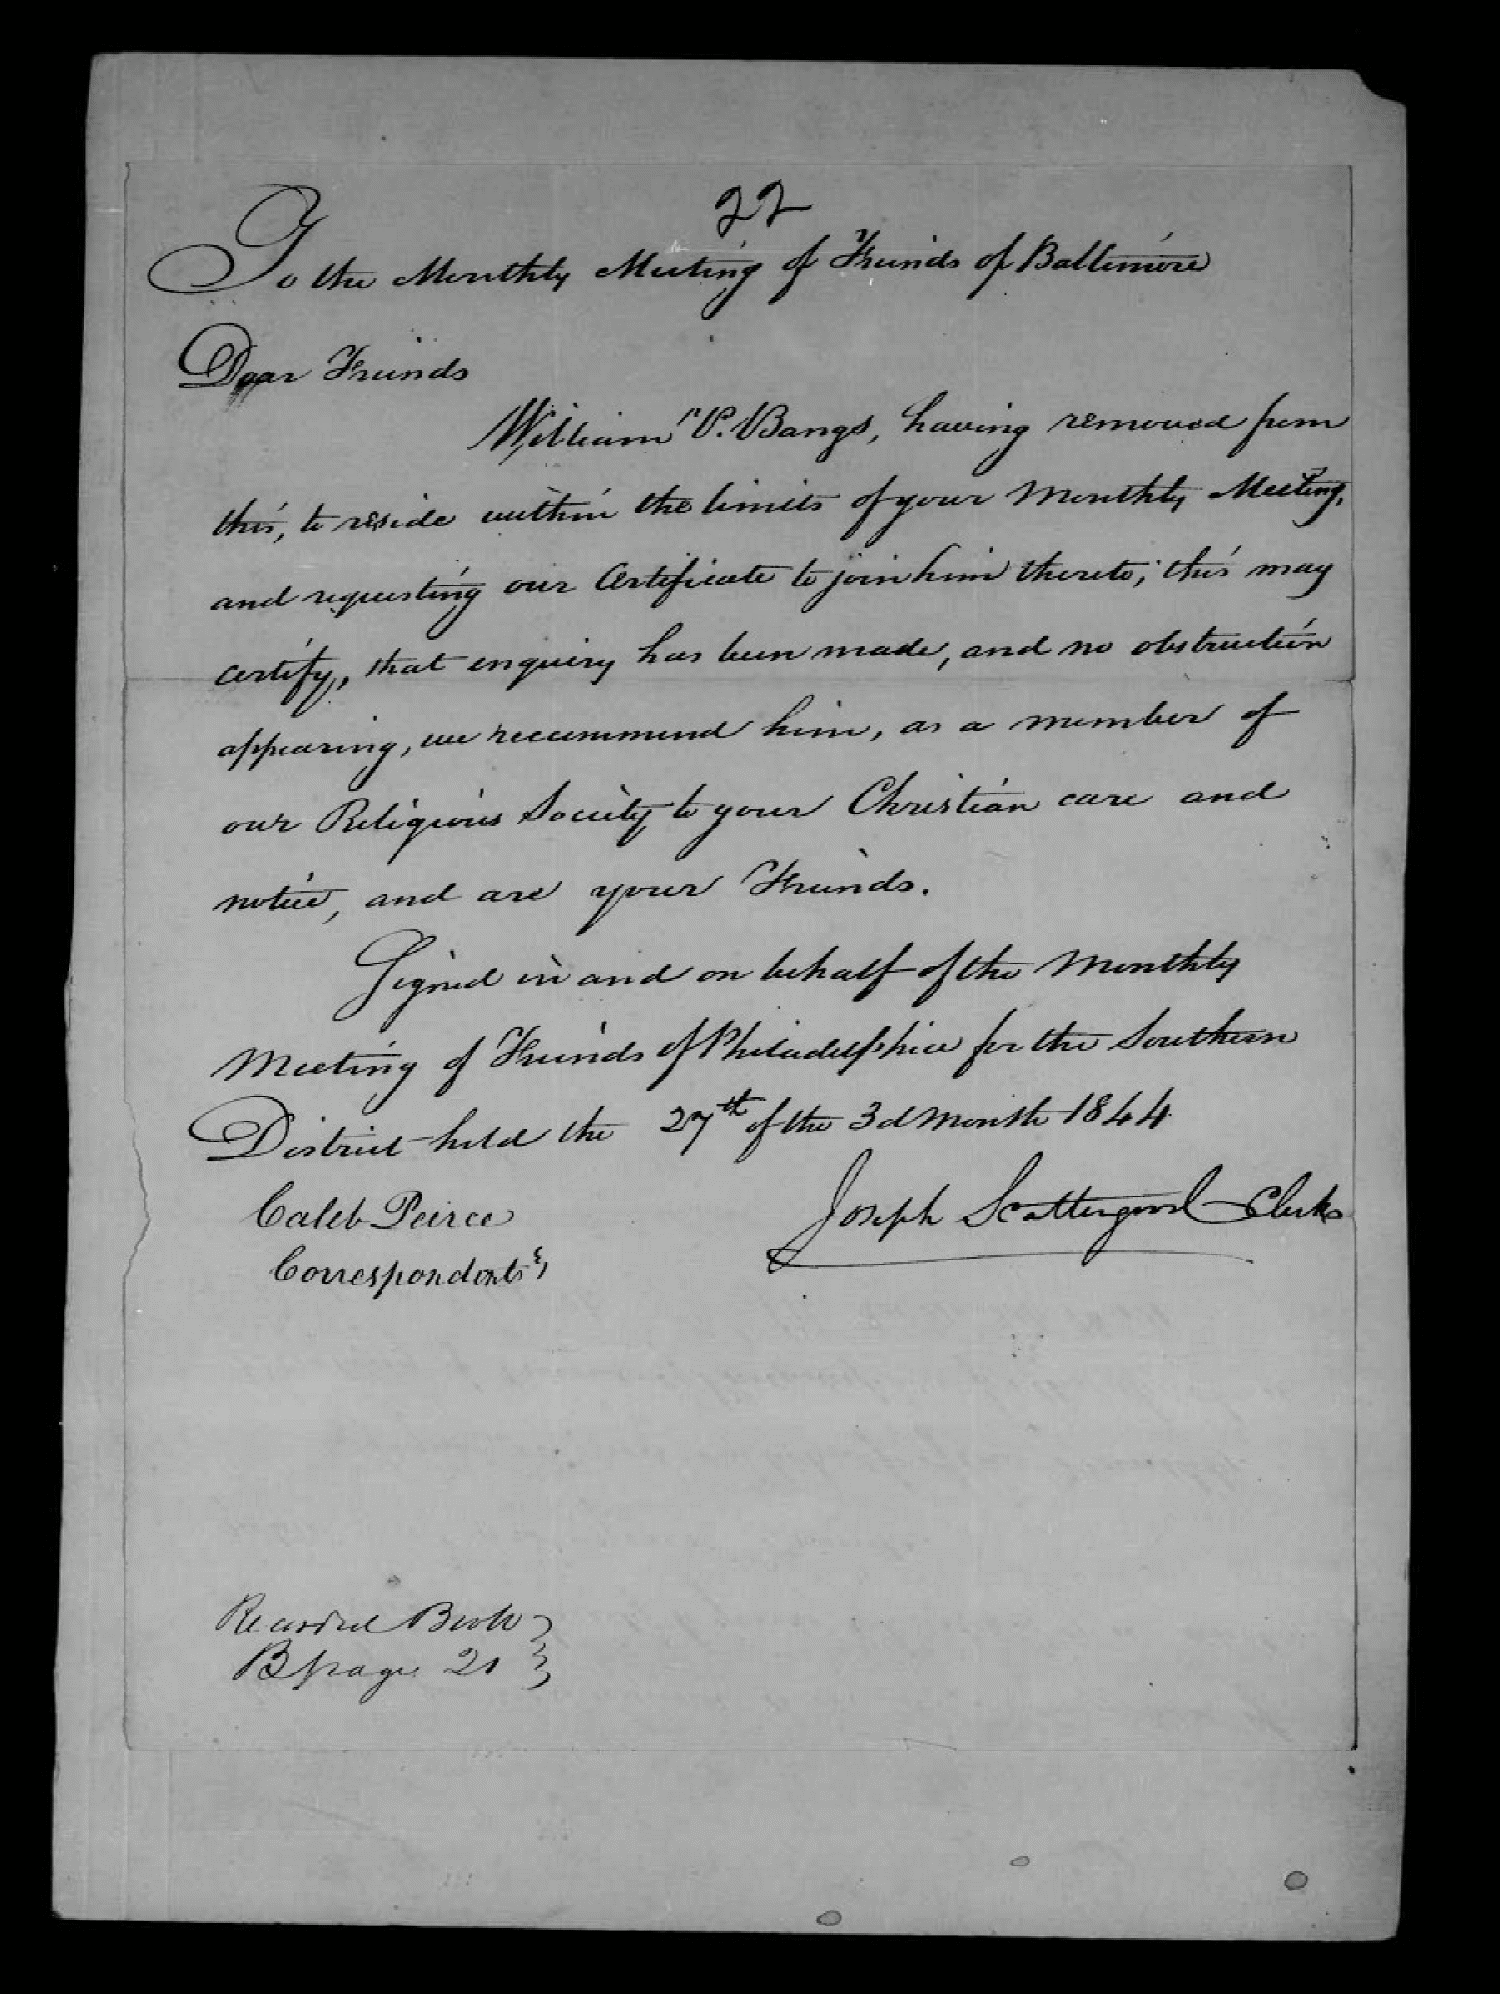 22
To the Monthly Meeting of Friends of Baltimore
Dear Friends
William P. Bangs, having removed from
this, to reside within the limits of your Monthly Meeting,
and requesting our Certificate to join him thereto; this may
certify, that enquiry has been made, and no obstruction
appearing, we recommend him, as a member of
our Religious Society to your Christian care and
notice, and are your Friends.
Signed in and on behalf of the Monthly
Meeting of Friends of Philadelphia for the Southern
District held the 27th of the 3d Month 1844.
Caleb Peirce Joseph Scattergood Clerk
Correspondent
Recorded Book
B page 21